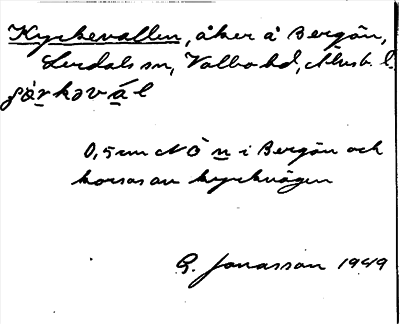 Kyrkevallen, åker å Bergön,
Lerdals sn, Valbo hd, Älvsb. l.
0,5 cm N Ö n i Bergön och
korsas av kyrkvägen
G. Jonasson 1949